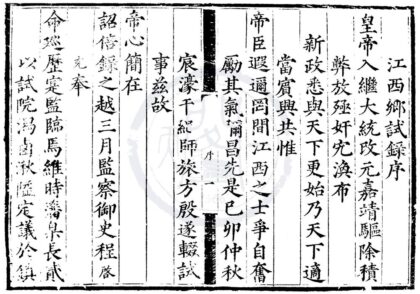 江西鄉試錄序
皇帝入繼大統改元嘉靖驅除積
弊放殛奸宄渙布
新政悉與天下更始乃天下適
當賓興共惟
帝臣遐邇罔間江西之士爭自奮
勵其氣彌昌先是已卯仲秋
序 一
宸濠干紀師旅方殷遂輟試
事茲故
帝心簡在
詔倍錄之越三月監察御史程啟
充奉
命巡歷寔監臨焉維時藩臬長貳
以試院潟鹵湫隘定議於鎮